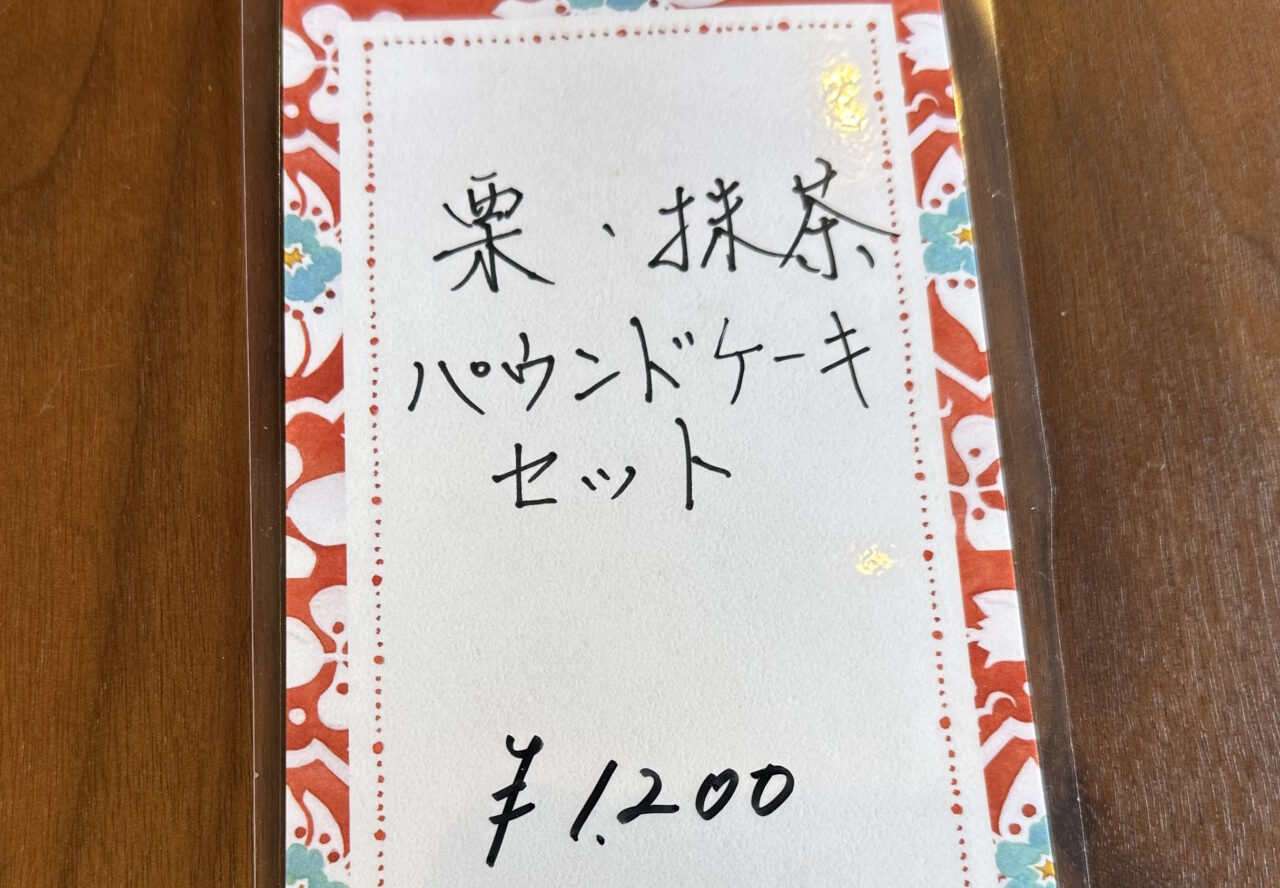 栗・抹茶
パウンドケーキ
セット
¥1,200